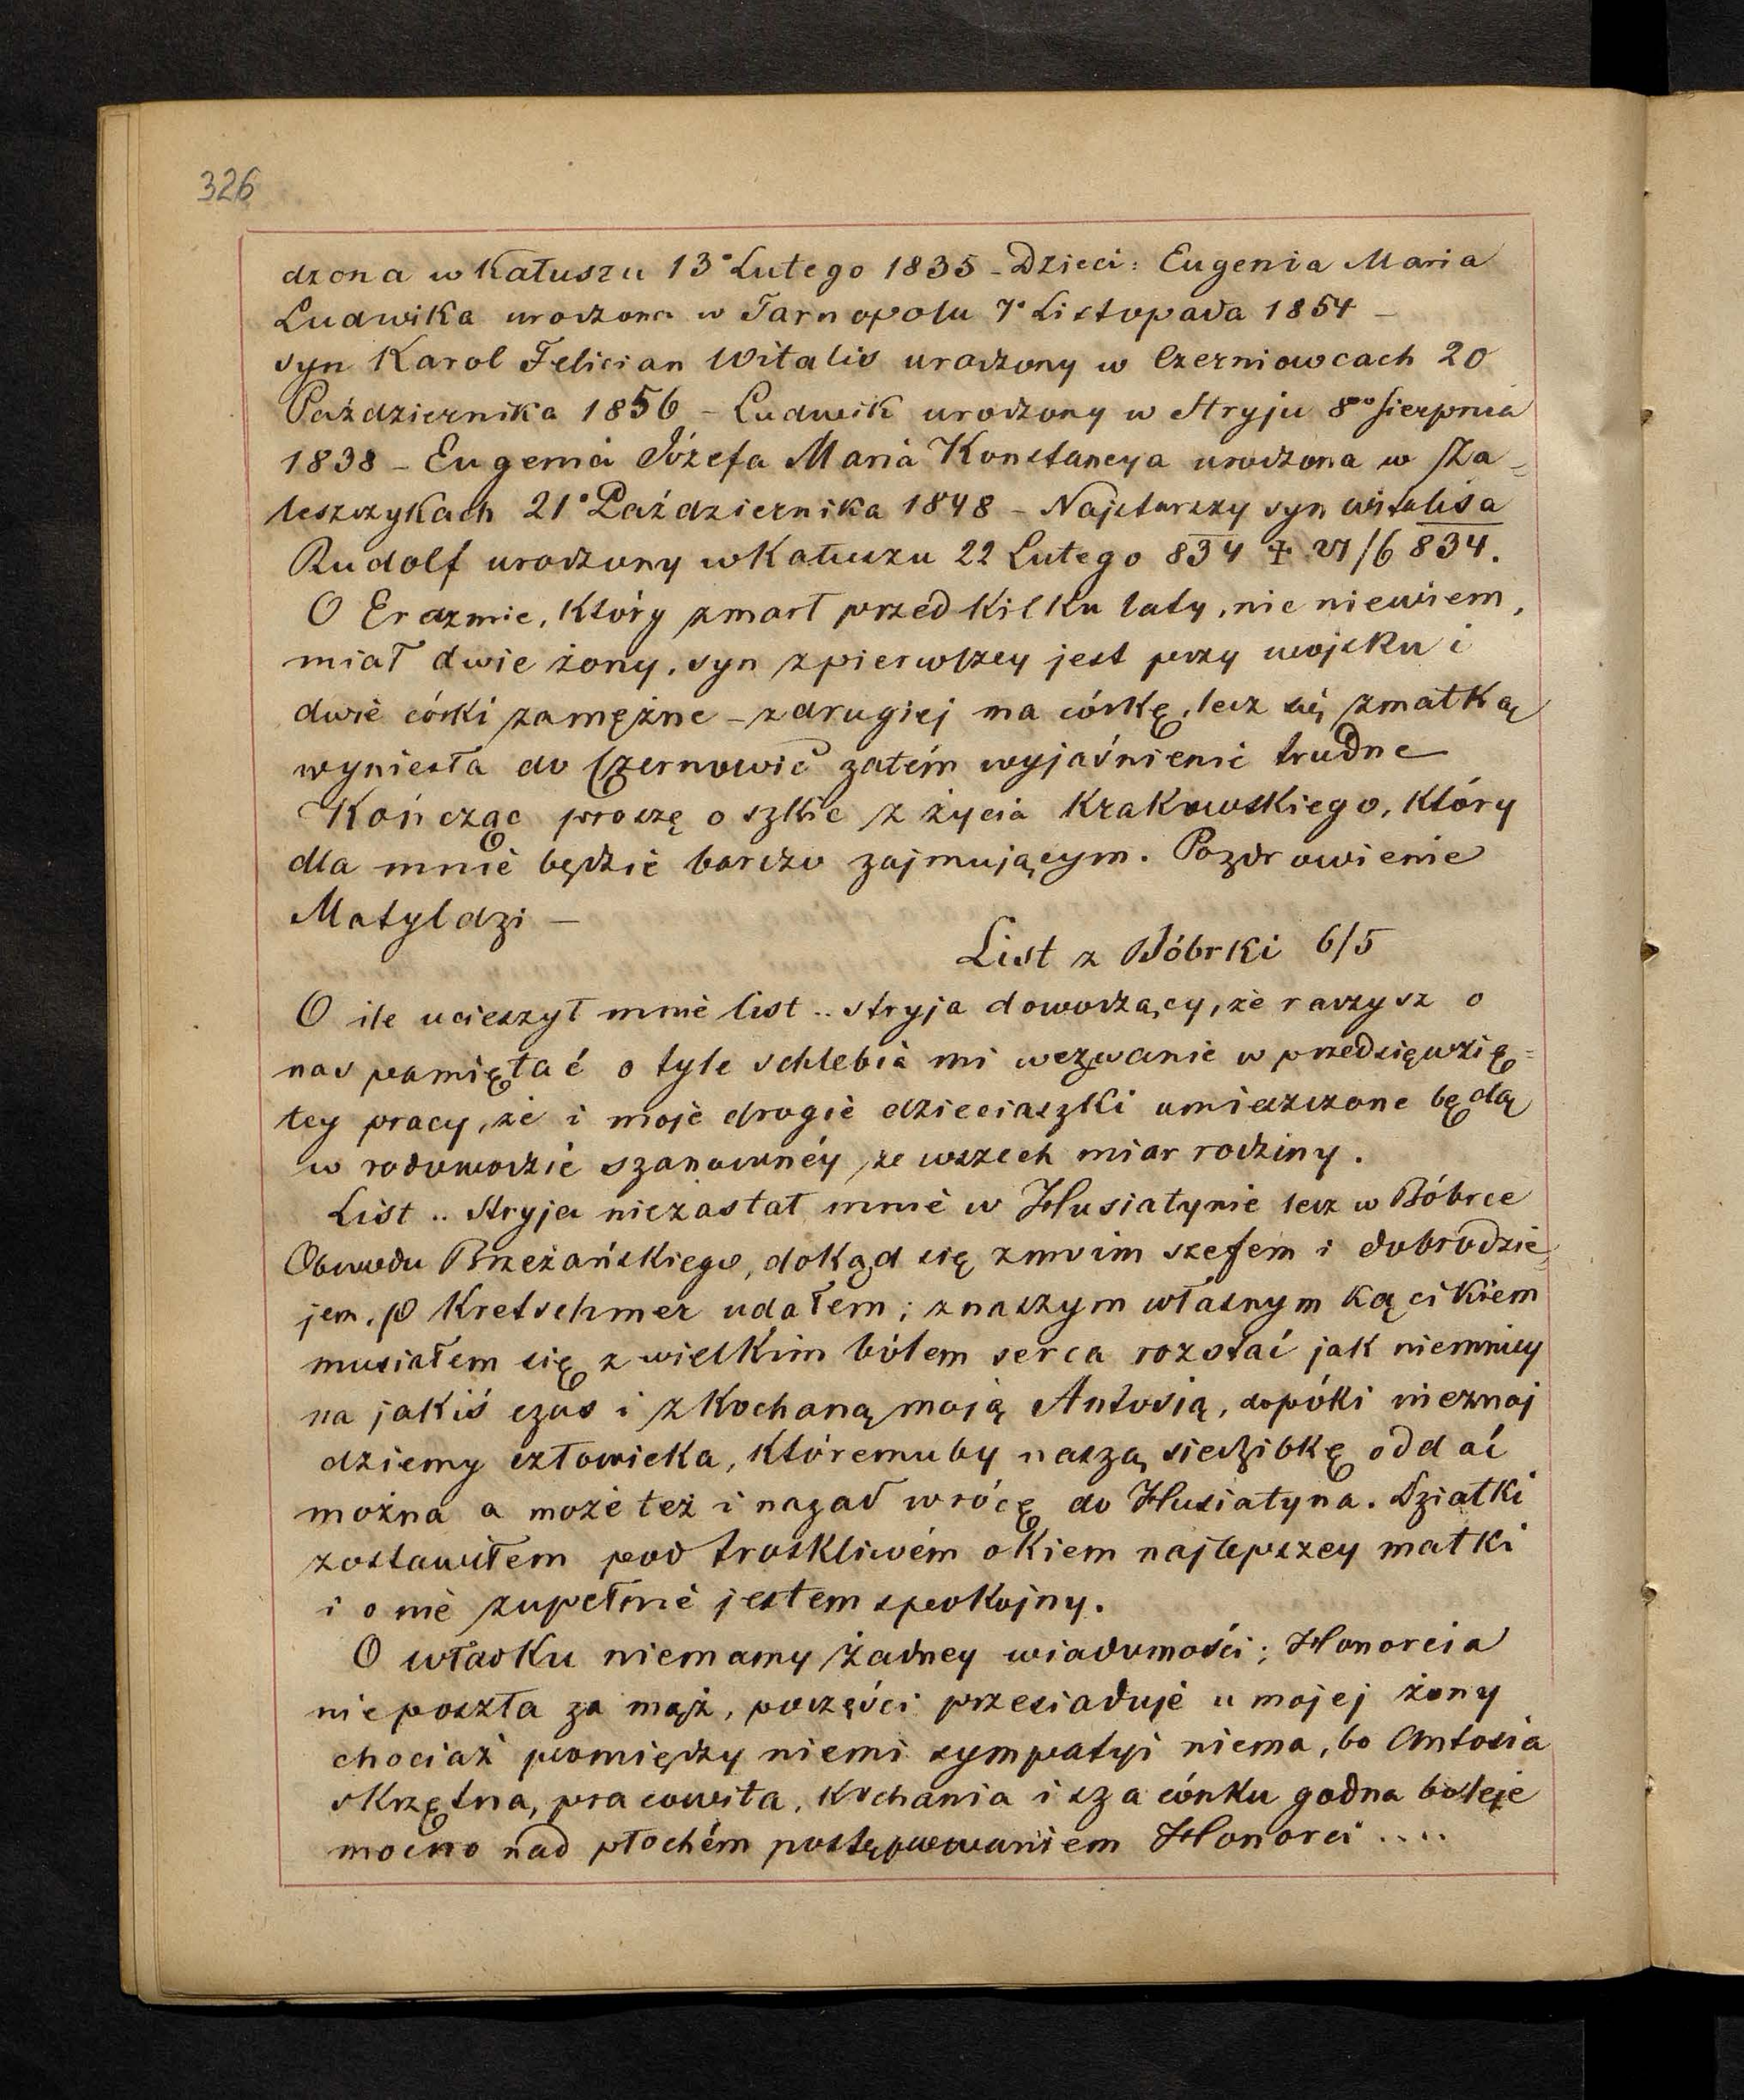 326
dzona w Kałuszu 13° Lutego 1835 – Dzieci: Eugenia Maria
Ludwika urodzona w Tarnopolu 7° Listopada 1854 –
syn Karol Felician Witalis urodzony w Czerniowcach 20
Października 1856 – Ludwik urodzony w Stryju 8° Sierpnia
1838 – Eugenia Józefa Maria Konstancya urodzona w Za=
leszczykach 21° Października 1848 – Najstarszy syn Witalisa
Rudolf urodzony w Kałuszu 22 Lutego 834 ‡ 27/6 834.
O Erazmie, który zmarł przed kilku laty, nic niewiem,
miał dwie żony, syn zpierwszey jest przy wojsku i
dwie córki zamężne – zdrugiej ma córkę, lecz się zmatką
wyniesła do Czernowic zatém wyjaśnienie trudne
Kończąc proszę o szkic z życia Krakowskiego, który
dla mnie będzie bardzo zajmującym. Pozdrowienie
Matyldzi –
List z Bóbrki 6/5
O ile ucieszył mnie list .. stryja dowodzący, że raczysz o
nas pamiętać o tyle schlebia mi wezwanie w przedsięwzię=
tey pracy, że i moje drogie dzieciaszki umieszczone będą
w rodowodzie szanownéy ze wszech miar rodziny.
List .. Stryja niezastał mnie w Husiatynie lecz w Bóbrce
Obwodu Brzeżańskiego, dokąd się zmoim szefem i dobrodzie=
jem, P Kretschmer udałem; znaszym własnym kącikiem
musiałem się z wielkim bólem serca rozstać jak niemniey
na jakiś czas i zkochaną moją Antosią, dopóki nieznaj
dziemy człowieka, któremuby naszą siedzibkę oddać
można a może też i nazad wrócę do Husiatyna. Dziatki
zostawiłem pod troskliwém okiem najlepszey matki
i o nie zupełnie jestem spokojny.
O Władku niemamy żadney wiadomości; Honorcia
nieposzła za mąż, poczęści przesiaduje u mojej żony
chociaż pomiędzy niemi sympatyi niema, bo Antosia
skrzętna, pracowita, kochania i szacónku godna boleje
mocno nad płochém postępowaniem Honorci ....